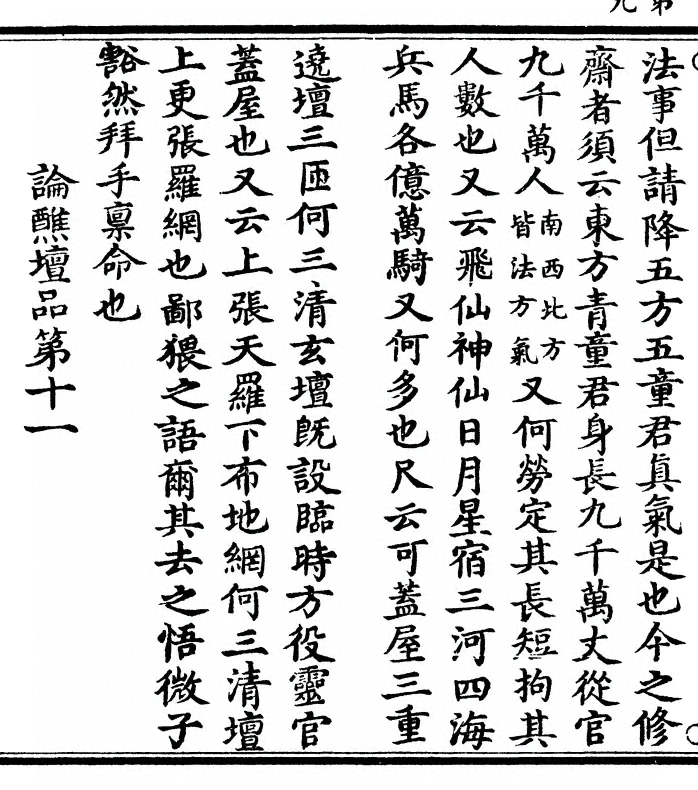 法事但請降五方五童君真氣是也今之修
齋者須云東方青童君身長九千萬丈從官
九千萬人南西北方皆法方氣又何勞定其長短拘其
人數也又云飛仙神仙日月星宿三河四海
兵馬各億萬騎又何多也尺云可蓋屋三重
遶壇三匝何三清玄壇旣設臨時方役靈官
蓋屋也又云上張天羅下布地網何三清壇
上更張羅網也鄙猥之語爾其去之悟微子
豁然拜手稟命也
論醮壇品第十一